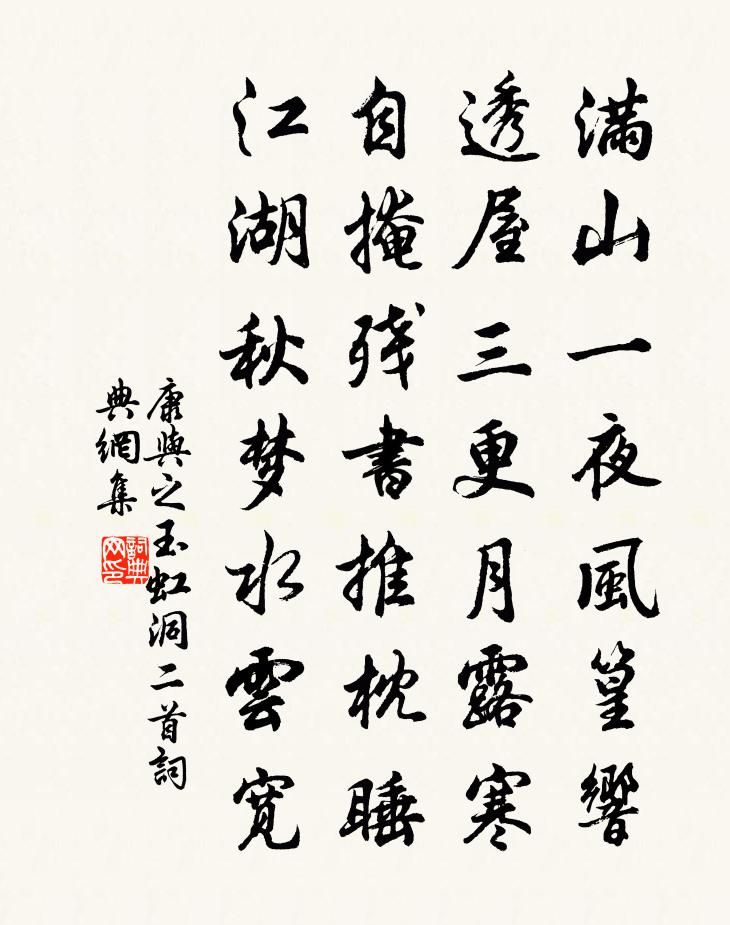 滿山一夜風篁響
透屋三更月露寒
自掩残書推枕睡
江湖秋梦水雲寬
康與之玉虹洞二首詞
典網集
詞典網印